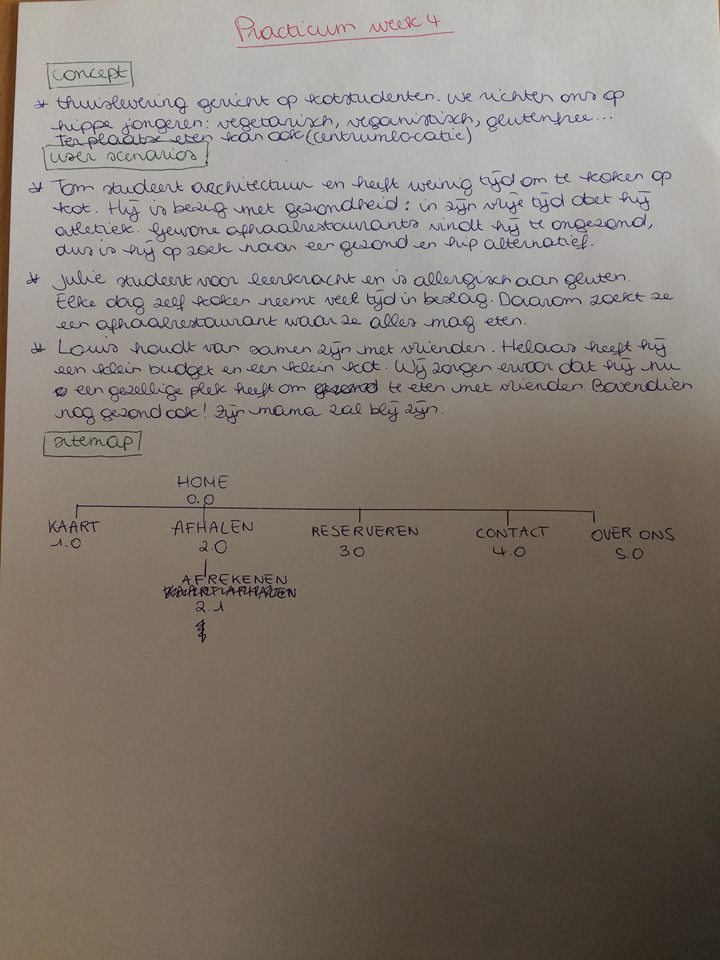 Practicum week 4
concept
* thuislevering gericht op kotstudenten. We richten ons op
hippe jongeren: vegetarisch, veganistisch, glutenfree...
Ter plaatse eten kan ook (centrumlocatie)
user scenarios
* Tom studeert architectuur en heeft weinig tijd om te koken op
kot. Hij is bezig met gezondheid: in zijn vrije tijd doet hij
atletiek. Gewone afhaalrestaurants vindt hij te ongezond,
dus is hij op zoek naar een gezond en hip alternatief.
* Julie studeert voor leerkracht en is allergisch aan gluten.
Elke dag zelf koken neemt veel tijd in beslag. Daarom zoekt ze
een afhaalrestaurant waar ze alles mag eten.
* Louis houdt van samen zijn met vrienden. Helaas heeft hij
een klein budget en een klein kot. Wij zorgen ervoor dat hij nu
een gezellige plek heeft om te eten met vrienden. Bovendien
nog gezond ook! Zijn mama zal blij zijn.
sitemap
HOME
0.0
KAART AFHALEN RESERVEREN CONTACT OVER ONS
1.0 2.0 3.0 4.0 5.0
AFREKENEN
2.1